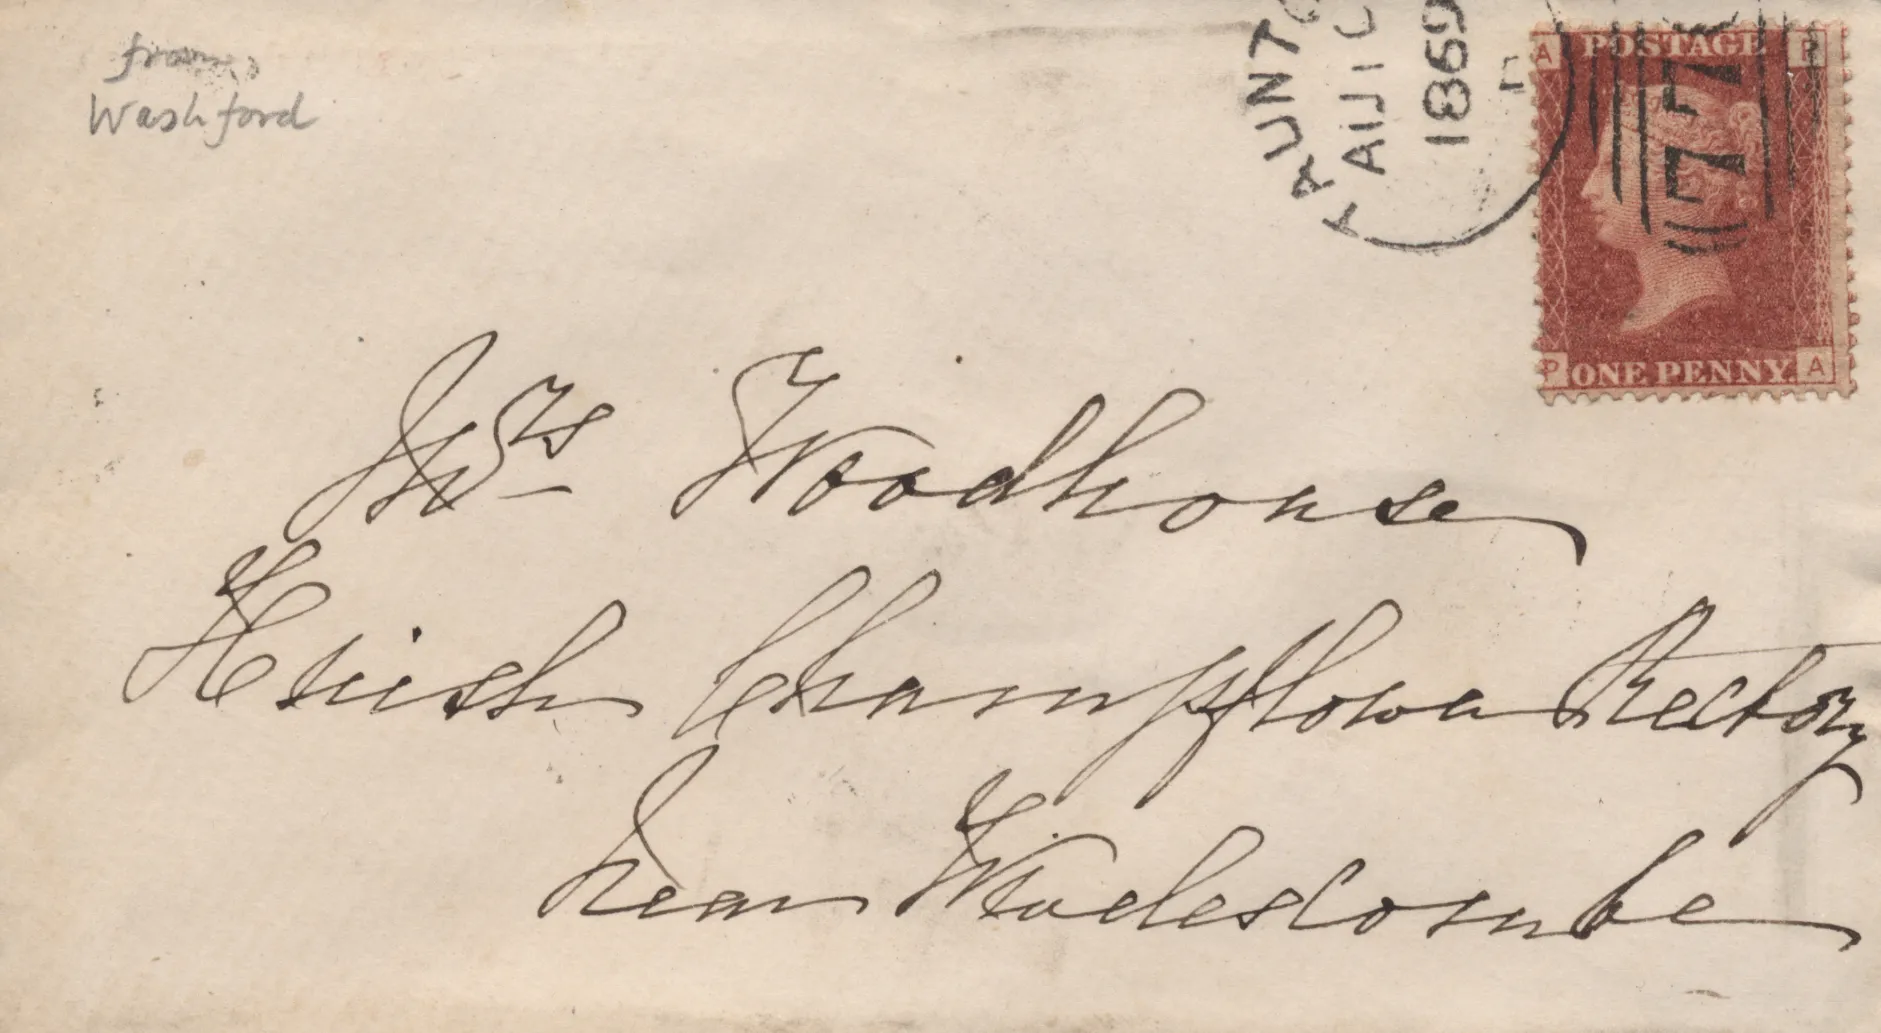 from
Washford
TAUNTO
AU 10
1869
A POSTAGE P
77
P ONE PENNY A
Mrs Woodhouse
Huish Champflower Rectory
near Wivelescombe